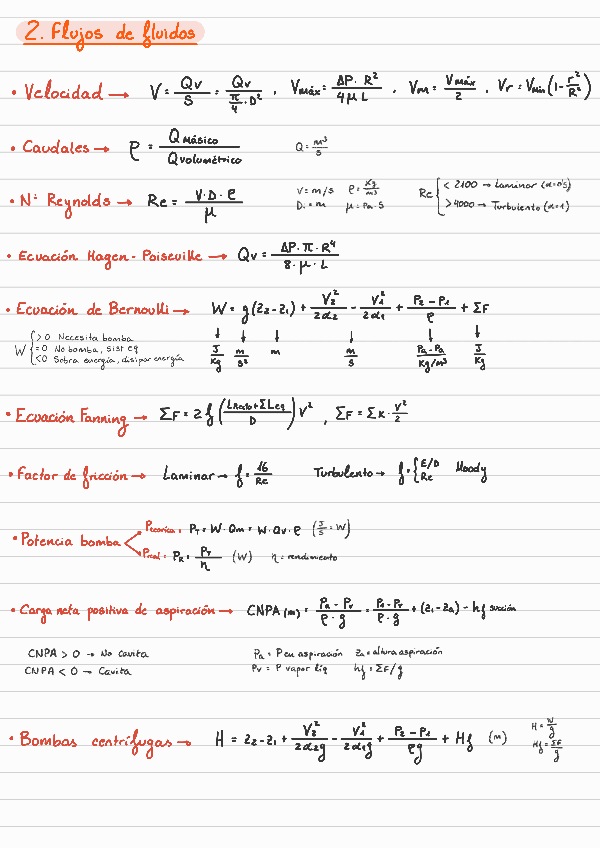 2. Flujos de fluidos
• Velocidad → V = Qv/S = Qv/(π/4 · D²) , Vmáx = ΔP · R²/4μL , Vm = Vmáx/2 , Vr = Vmáx(1 - r²/R²)
• Caudales → ρ = Q másico/Q volumétrico   Q = m³/s
• Nº Reynolds → Re = V·D·ρ/μ   V = m/s   ρ = Kg/m³   Re { < 2100 → Laminar (α=0'5)
D = m   μ = Pa·s   > 4000 → Turbulento (α=1)
• Ecuación Hagen-Poiseville → Qv = ΔP·π·R⁴/8·μ·L
• Ecuación de Bernoulli → W = g(z2-z1) + V2²/2α2 - V1²/2α1 + P2-P1/ρ + ΣF
W { >0 Necesita bomba
=0 No bomba, sist eq
<0 Sobra energía, disipar energía
↓ J/Kg ↓ m/s² ↓ m ↓ m/s ↓ Pa-Pa/Kg/m³ ↓ J/Kg
• Ecuación Fanning → ΣF = 2f(LRecto+ΣLeq/D)V² , ΣF = ΣK · V²/2
• Factor de fricción → Laminar → f = 16/Re   Turbulento → f = { E/D Moody
Re
• Potencia bomba Pteórica: PT = W·Qm = W·Qv·ρ (J/s = W)
Preal: PR = PT/η (W)   η = rendimiento
• Carga neta positiva de aspiración → CNPA (m) = Pa - Pv/ρ·g = P1-Pv/ρ·g + (z1-za) - hf succión
CNPA > 0 → No cavita   Pa = P en aspiración   za = altura aspiración
CNPA < 0 → Cavita   Pv = P vapor líq   hf = ΣF/g
• Bombas centrífugas → H = z2-z1 + V2²/2α2g - V1²/2α1g + P2-P1/ρg + Hf (m)   H = W/g
Hf = ΣF/g